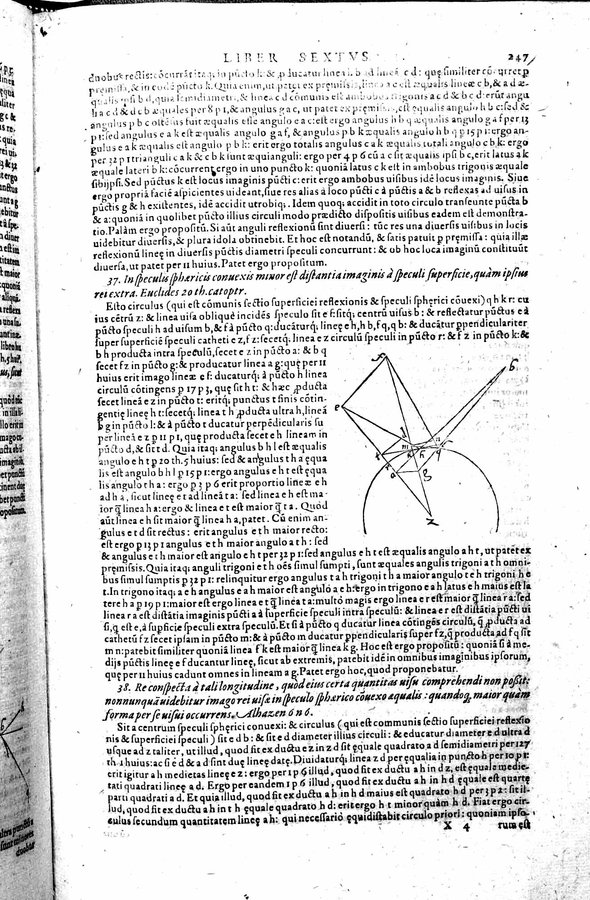 LIBER SEXTVS. 247
duobus rectis: cōcurrāt itaq; in pūcto k: & p
& in eodē pūcto k. Quia enim, ut patet ex premissis, linea a c est æqualis lineæ c b, & a d æ-
qualis ipsi b d, quia semidiametri, & linea c d cōmunis est ambobus trigonis a c d & b c d: erūt angu
li a c d & d c b æquales per 8 p 1, & angulus g a c, ut patet ex premissis, est æqualis angulo h b c: sed &
angulus p b c ostēsus fuit æqualis esse angulo e a c: est ergo angulus h b q æqualis angulo g a f per 13
p 1: sed angulus e a k est æqualis angulo g a f, & angulus p b k æqualis angulo h b q p 15 p 1: ergo an-
gulus e a k æqualis est angulo p b k: erit ergo totalis angulus c a k æqualis totali angulo c b k: ergo
per 32 p 1 trianguli c a k & c b k sunt æquianguli: ergo per 4 p 6 cū a c sit æqualis ipsi b c, erit latus a k
æquale lateri b k: cōcurrent ergo in uno puncto k: quonia latus c k est in ambobus trigonis æquale
sibijpsi. Sed pūctus k est locus imaginis pūcti c: erit ergo ambobus uisibus idē locus imaginis. Siue
ergo propria facie aspicientes uideant, siue res alias à loco pūcti c à pūctis a & b reflexas ad uisus in
pūctis g & h existentes, idē accidit utrobiq;. Idem quoq; accidit in toto circulo transeunte pūcta b
& a: quonia in quolibet pūcto illius circuli modo prædicto dispositis uisibus eadem est demonstra-
tio. Palàm ergo propositū. Si aūt anguli reflexionū sint diuersi: tūc res una diuersis uisibus in locis
uidebitur diuersis, & plura idola obtinebit. Et hoc est notandū, & satis patuit p premissa: quia illæ
reflexionū lineę in diuersis pūctis diametri speculi concurrunt: & ob hoc loca imaginū constituūt
diuersa, ut patet per 11 huius. Patet ergo propositum.
37. In speculis sphæricis conuexis minor est distantia imaginis à speculi superficie, quàm ipsius
rei extra. Euclides 20 th. catoptr.
Esto circulus (qui est cōmunis sectio superficiei reflexionis & speculi spherici cōuexi) q h k r: cu
ius cētrū z: & linea uisa obliquè incidēs speculo sit e f: sitq; centrū uisus b: & reflectatur pūctus e à
pūcto speculi h ad uisum b, & f à pūcto q: ducāturq; lineę e h, h b, f q, q b: & ducātur ppendiculariter
super superficiē speculi catheti e z, f z: secetq; linea e z circulū speculi in pūcto r: & f z in pūcto k: &
b h producta intra speculū, secet e z in pūcto a: & b q
secet f z in pūcto g: & producatur linea a g: quę per 11
huius erit imago lineæ e f: ducaturq; à pūcto h linea
circulū cōtingens p 17 p 3, quę sit h t: & hæc pducta
secet lineā e z in pūcto t: eritq; punctus t finis cōtin-
gentię lineę h t: secetq; linea t h pducta ultra h, lineā
f q in pūcto l: & à pūcto t ducatur perpēdicularis su
per lineā e z p 11 p 1, quę producta secet e h lineam in
pūcto d, & sit d. Quia itaq; angulus b h l est æqualis
angulo e h t p 20 th. 5 huius: sed & angulus t h a ęqua
lis est angulo b h l p 15 p 1: ergo angulus e h t est ęqua
lis angulo t h a: ergo p 3 p 6 erit proportio lineæ e h
ad h a, sicut lineę e t ad lineā t a: sed linea e h est ma-
ior q̄ linea h a: ergo & linea e t est maior q̄ t a. Quòd
aūt linea e h sit maior q̄ linea h a, patet. Cū enim an-
gulus e t d sit rectus: erit angulus e t h maior recto:
est ergo p 13 p 1 angulus e t h maior angulo a t h: sed
& angulus e t h maior est angulo e h t per 32 p 1: sed angulus e h t est æqualis angulo a h t, ut patet ex
præmissis. Quia itaq; anguli trigoni e t h oēs simul sumpti, sunt æquales angulis trigoni a t h omni-
bus simul sumptis p 32 p 1: relinquitur ergo angulus t a h trigoni t h a maior angulo t e h trigoni h e
t. In trigono itaq; a e h angulus e a h maior est angulo a e h: ergo in trigono e a h latus e h maius est la
tere h a p 19 p 1: maior est ergo linea e t q̄ linea t a: multò magis ergo linea e r est maior q̄ linea r a: sed
linea r a est distātia imaginis pūcti a à superficie speculi intra speculū: & linea e r est distātia pūcti ui
si, q est e, à supficie speculi extra speculū. Et si à pūcto q ducatur linea cōtingēs circulū, q pducta ad
cathetū f z secet ipsam in pūcto m: & à pūcto m ducatur ppendicularis super f z, q producta ad f q sit
m n: patebit similiter quòd linea f k est maior q̄ linea k g. Hoc est ergo propositū: quonia si à me-
dijs pūctis lineę e f ducantur lineę, sicut ab extremis, patebit idē in omnibus imaginibus ipsorum,
quę per 11 huius cadunt omnes in lineam a g. Patet ergo hoc, quod proponebatur.
38. Re conspecta à tali longitudine, quòd eius certa quantitas uisu comprehendi non possit:
nonnunquā uidebitur imago rei uisæ in speculo sphærico cōuexo æqualis: quandoq; maior quàm
forma per se uisui occurrens. Alhazen 6 n 6.
Sit a centrum speculi spherici conuexi: & circulus (qui est communis sectio superficiei reflexio
nis & superficiei speculi) sit e d b: & sit e d diameter illius circuli: & educatur diameter e d ultra d
usque ad z taliter, ut illud, quod fit ex ductu e z in z d sit ęquale quadrato a d semidiametri per 127
th. 1 huius: ac si e d & a d sint duę lineę datę. Diuidaturq; linea z d per equalia in puncto h per 10 p 1:
erit igitur a h medietas lineę e z: ergo per 1 p 6 illud, quod fit ex ductu a h in d z, est ęquale medie-
tati quadrati lineę a d. Ergo per eandem 1 p 6 illud, quod fit ex ductu a h in h d ęquale est quartę
parti quadrati a d. Et quia illud, quod fit ex ductu a h in h d maius est quadrato h d per 3 p 2: sit il-
lud, quod fit ex ductu a h in t h ęquale quadrato h d: erit ergo h t minor quàm h d. Fiat ergo cir-
culus secundum quantitatem lineę a h: qui necessariò ęquidistabit circulo priori: quoniam ipso-
X 4 rum est